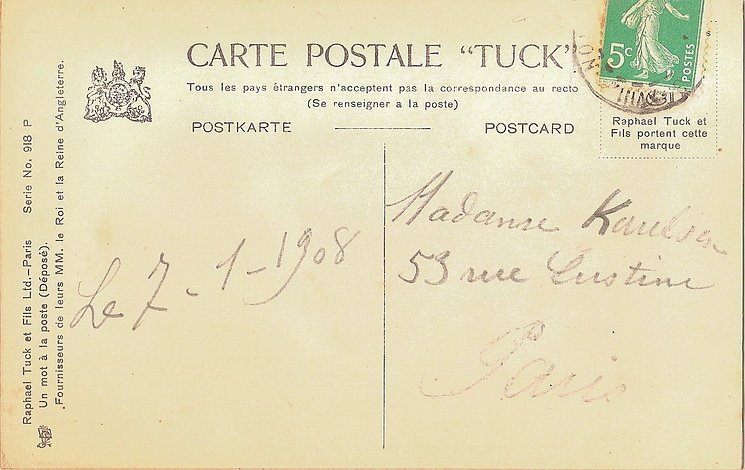 CARTE POSTALE "TUCK"
Tous les pays étrangers n'acceptent pas la correspondance au recto
(Se renseigner a la poste)
POSTKARTE
POSTCARD
5c
POSTES
Raphael Tuck et
Fils portent cette
marque
Raphael Tuck et Fils Ltd.—Paris Serie No. 918 P
Un mot à la poste (Déposé).
Fournisseurs de leurs MM. le Roi et la Reine d'Angleterre.
Le 7-1-1908
Madame
53 rue Custine
Paris